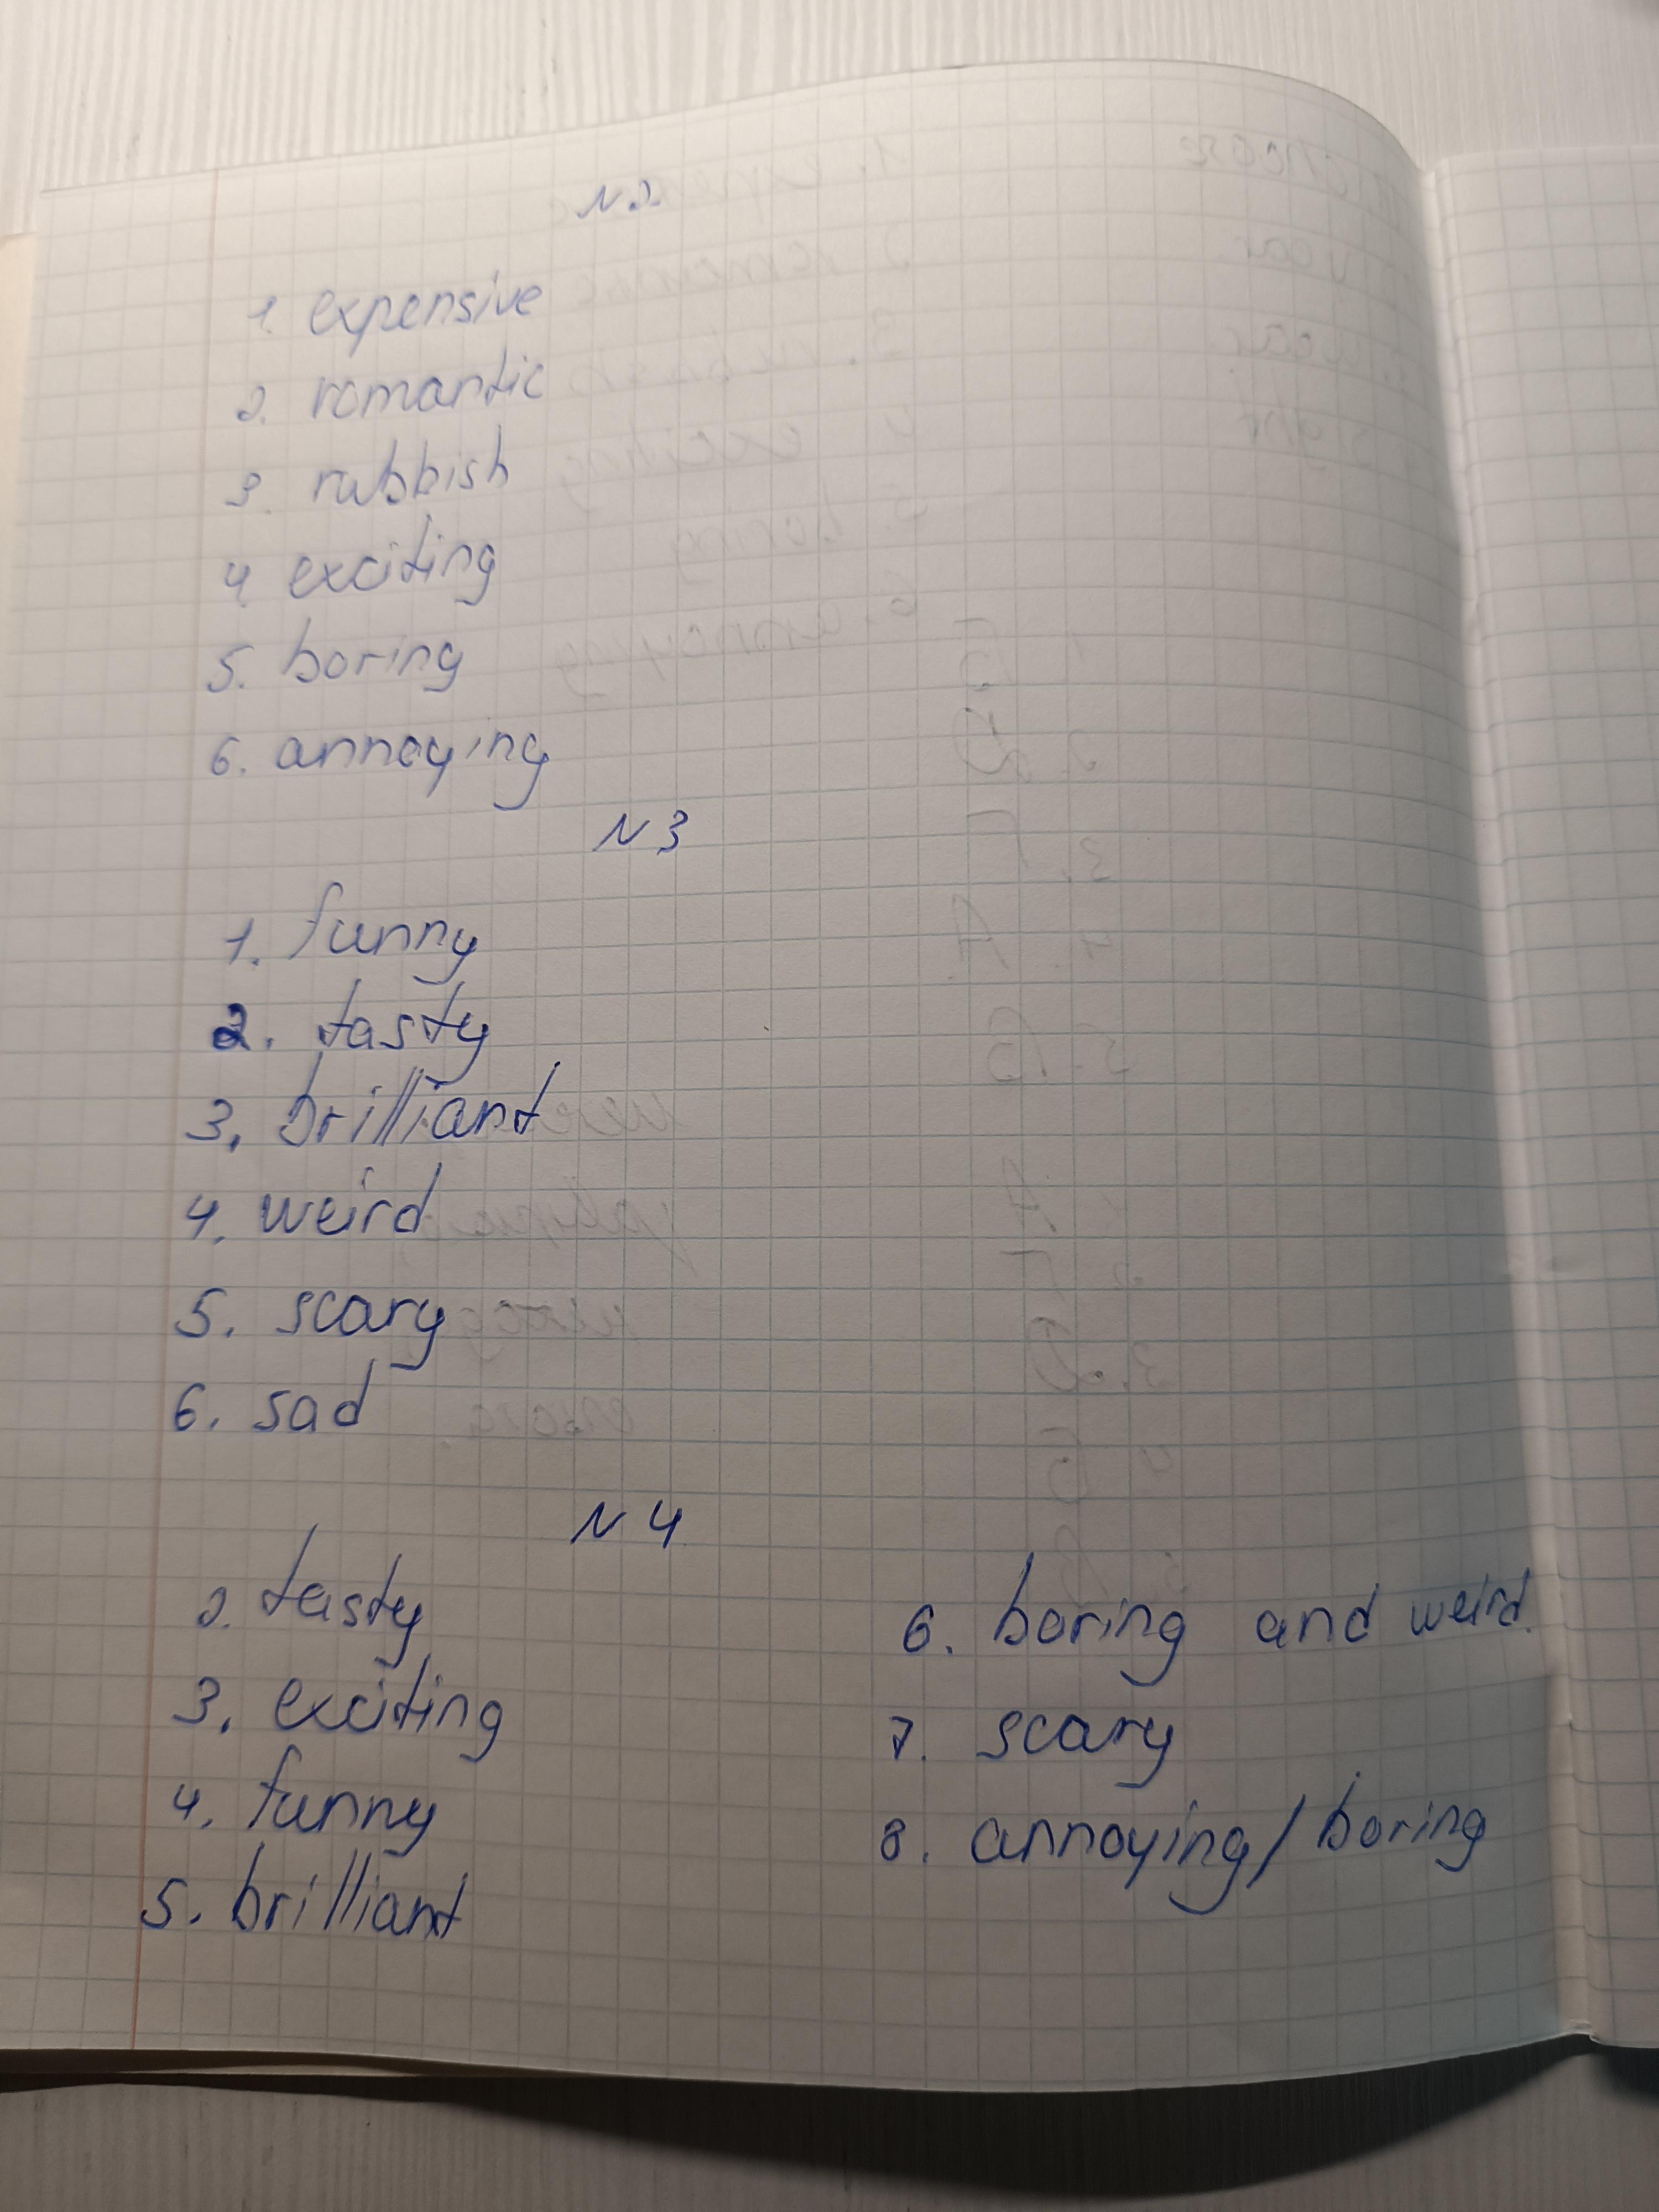 N 2.
1. expensive
2. romantic
3. rubbish
4 exciting
5. boring
6. annoying
N 3
1. funny
2. tasty
3. brilliant
4. weird
5. scary
6. sad
N 4
2. tasty
3. exciting
4. funny
5. brilliant
6. boring and weird.
7. scary
8. annoying/boring